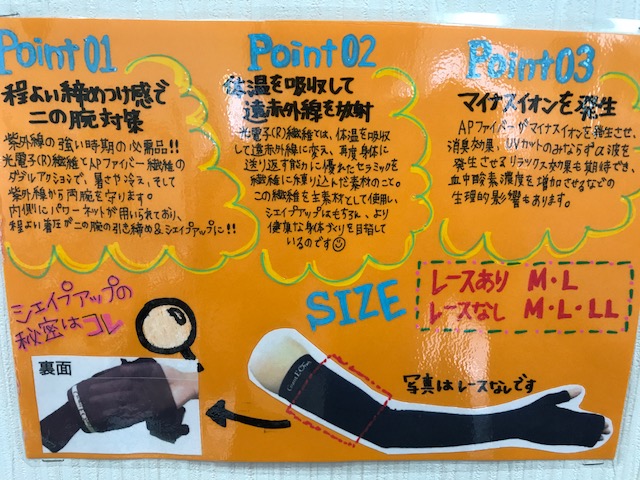 Point01
程よい締めつけ感で
二の腕対策
紫外線の強い時期の必需品!!
光電子(R)繊維とAPファイバー繊維の
ダブルアクションで、暑さや冷え、そして
紫外線から両腕を守ります。
内側にパワーネットが用いられており、
程よい着圧が二の腕の引き締め&シェイプアップに!!
Point02
体温を吸収して
遠赤外線を放射
光電子(R)繊維では、体温を吸収
して遠赤外線に変え、再度身体に
送り返す能力に優れたセラミックを
繊維に練り込んだ素材のこと。
この繊維を主素材として使用し、
シェイプアップはもちろん、より
健康な身体づくりを目指して
いるのです
Point03
マイナスイオンを発生
APファイバーがマイナスイオンを発生させ、
消臭効果、UVカットのみならずα波を
発生させるリラックス効果も期待でき、
血中酸素濃度を増加させるなどの
生理的影響もあります。
シェイプアップの
秘密はコレ
裏面
SIZE
レースあり M・L
レースなし M・L・LL
写真はレースなしです